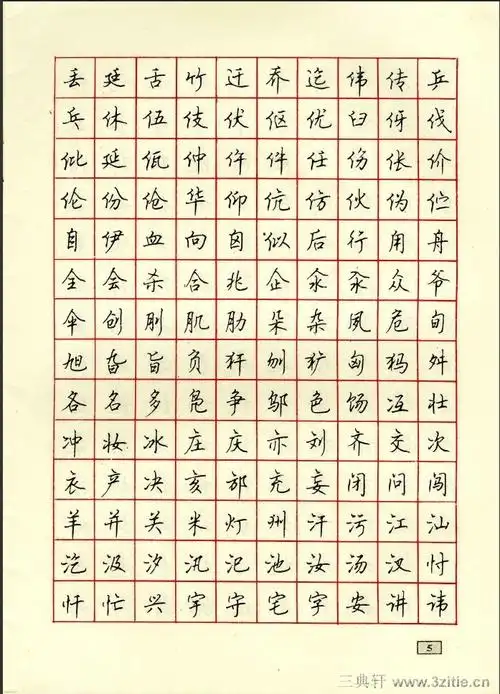 丢廷舌竹迁乔迄伟传乒
乓休伍伎伏伛优臼伢伐
仳延佤仲仵件任伤伥价
伦份伧华仰伉仿伙伪伫
自伊血向囟似后行甪舟
全会杀合兆企汆氽众爷
伞创刖肌肋朵杂夙危旬
旭旮旨负犴刎犷匈犸舛
各名多凫争邬色饧冱壮
冲妆冰庄庆亦刘齐交次
衣产决亥邡充妄闭问闯
羊并关米灯州汗污江汕
汔汲汐汛汜池汝汤汊忖
忏忙兴宇守宅字安讲讳
5
三典轩 www.3zitie.cn